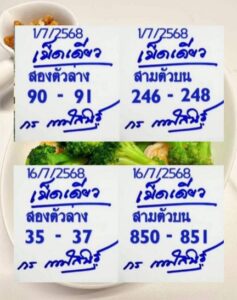 1/7/2568
เม็ดเดียว
สองตัวล่าง
90 - 91
1/7/2568
เม็ดเดียว
สามตัวบน
246 - 248
16/7/2568
เม็ดเดียว
สองตัวล่าง
35 - 37
16/7/2568
เม็ดเดียว
สามตัวบน
850 - 851